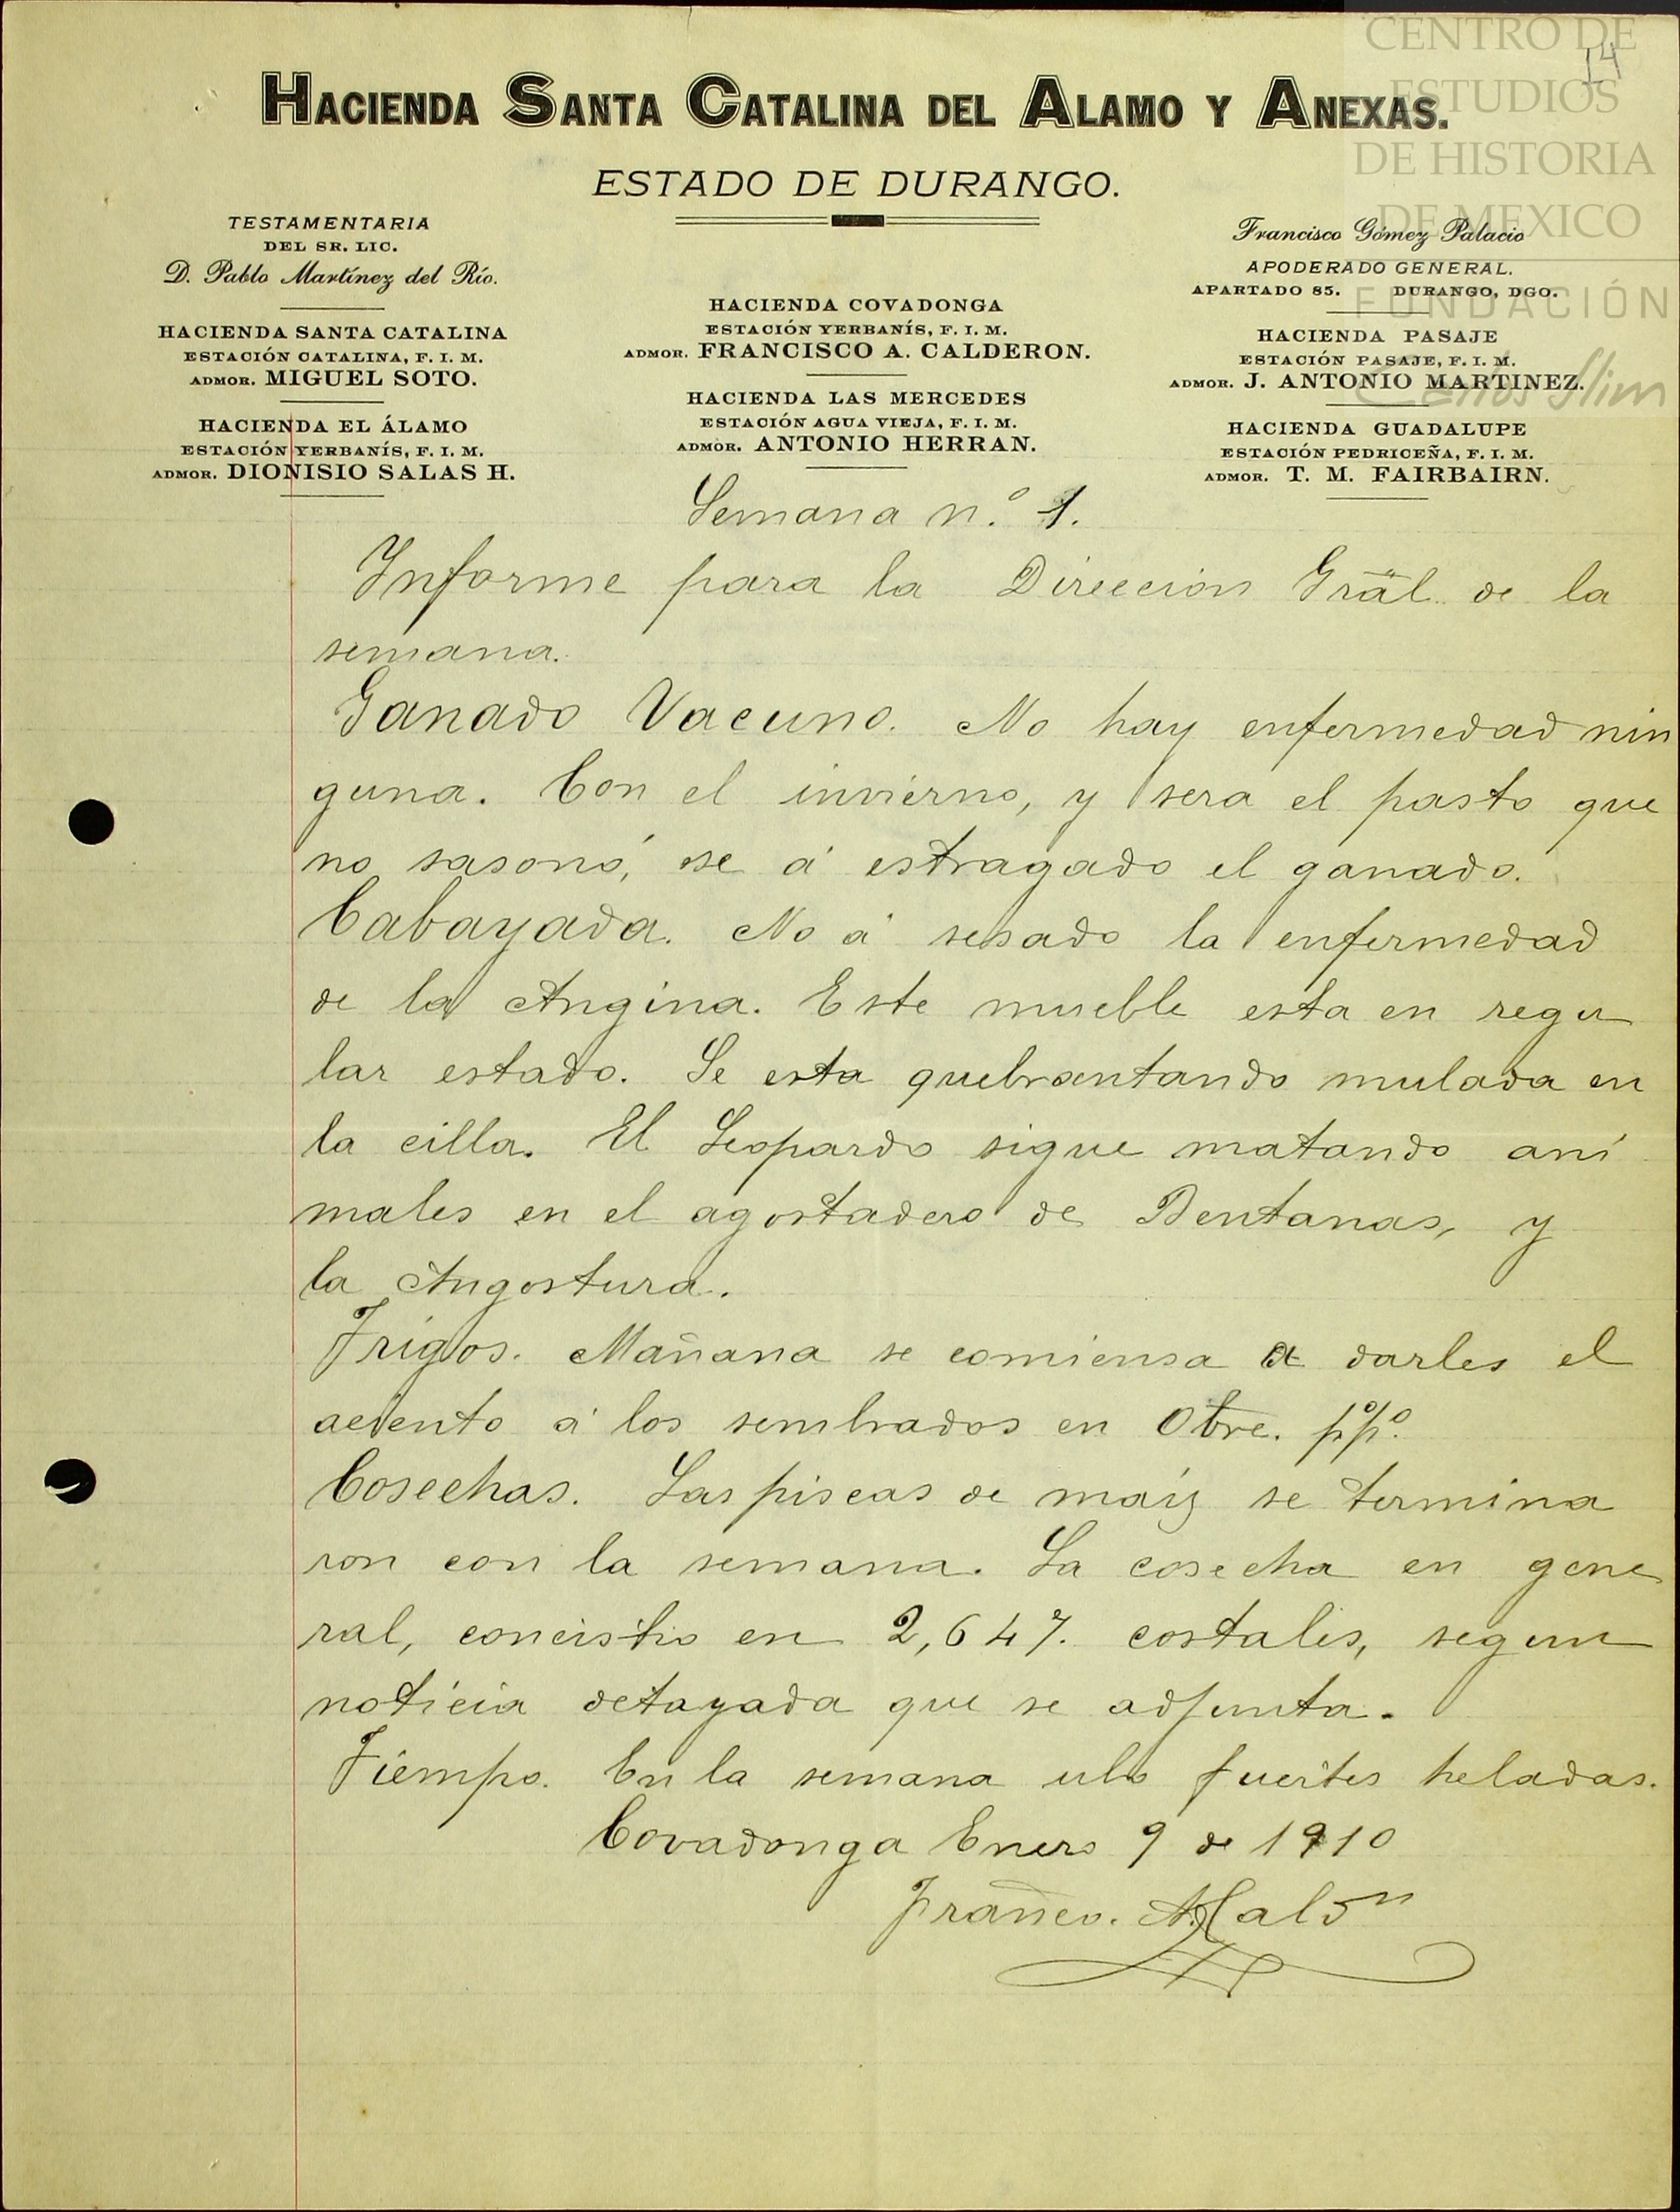 CENTRO DE
ESTUDIOS
DE HISTORIA
DE MEXICO
FUNDACIÓN
Carlos Slim
14
HACIENDA SANTA CATALINA DEL ALAMO Y ANEXAS.
ESTADO DE DURANGO.
TESTAMENTARIA
DEL SR. LIC.
D. Pablo Martínez del Río.
HACIENDA SANTA CATALINA
ESTACIÓN CATALINA, F. I. M.
ADMOR. MIGUEL SOTO.
HACIENDA EL ÁLAMO
ESTACIÓN YERBANÍS, F. I. M.
ADMOR. DIONISIO SALAS H.
HACIENDA COVADONGA
ESTACIÓN YERBANÍS, F. I. M.
ADMOR. FRANCISCO A. CALDERON.
HACIENDA LAS MERCEDES
ESTACIÓN AGUA VIEJA, F. I. M.
ADMOR. ANTONIO HERRAN.
Francisco Gómez Palacio
APODERADO GENERAL.
APARTADO 85. DURANGO, DGO.
HACIENDA PASAJE
ESTACIÓN PASAJE, F. I. M.
ADMOR. J. ANTONIO MARTINEZ.
HACIENDA GUADALUPE
ESTACIÓN PEDRICEÑA, F. I. M.
ADMOR. T. M. FAIRBAIRN.
Semana n.º 1.
Informe para la Direccion Gral. de la
semana.
Ganado Vacuno. No hay enfermedad nin
guna. Con el invierno, y sera el pasto que
no sasonó, se á estragado el ganado.
Cabayada. No á sesado la enfermedad
de la Angina. Este mueble esta en regu
lar estado. Se esta quebrantando mulada en
la cilla. El Leopardo sigue matando ani
males en el agostadero de Bentanas, y
la Angostura.
Trigos. Mañana se comiensa a darles el
aciento á los sembrados en Obre. p.º p.º
Cosechas. Las piscas de maiz se termina
ron con la semana. La cosecha en gene
ral, concistio en 2,647. costales, segun
noticia detayada que se adjunta.
Tiempo. En la semana ubo fuertes heladas.
Covadonga Enero 9 de 1910
Franco. A. Calón